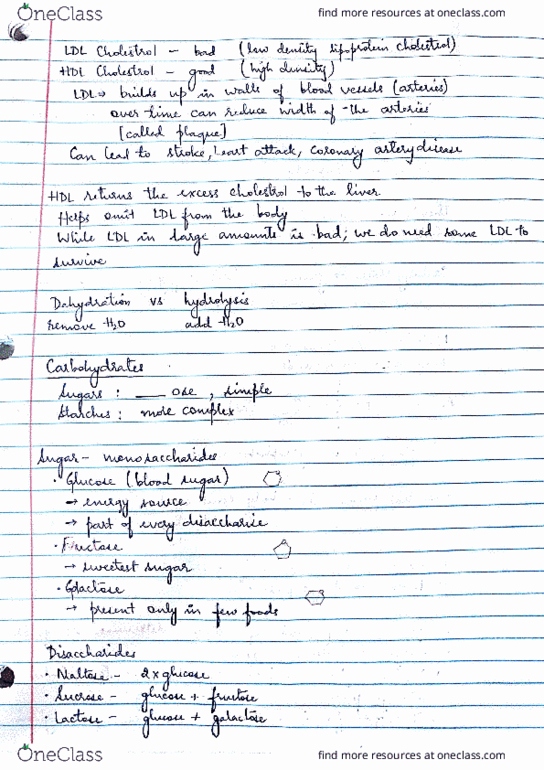 OneClass
find more resources at oneclass.com
LDL Cholestrol - bad (low density lipoprotein cholestrol)
HDL Cholestrol - good (high density)
LDL → builds up in walls of blood vessels (arteries)
over time can reduce width of the arteries
[called plaque]
Can lead to stroke, heart attack, coronary artery disease
HDL returns the excess cholestrol to the liver
Helps omit LDL from the body
While LDL in large amounts is bad; we do need some LDL to
survive
Dehydration vs hydrolysis
remove H₂O add H₂O
Carbohydrates
Sugars : ___ ose , simple
Starches : more complex
Sugar - monosaccharides
• Glucose (blood sugar)
→ energy source
→ part of every disaccharide
• Fructose
→ sweetest sugar
• Galactose
→ present only in few foods
Disaccharides
• Maltose - 2 x glucose
• Sucrose - glucose + fructose
• Lactose - glucose + galactose
OneClass
find more resources at oneclass.com